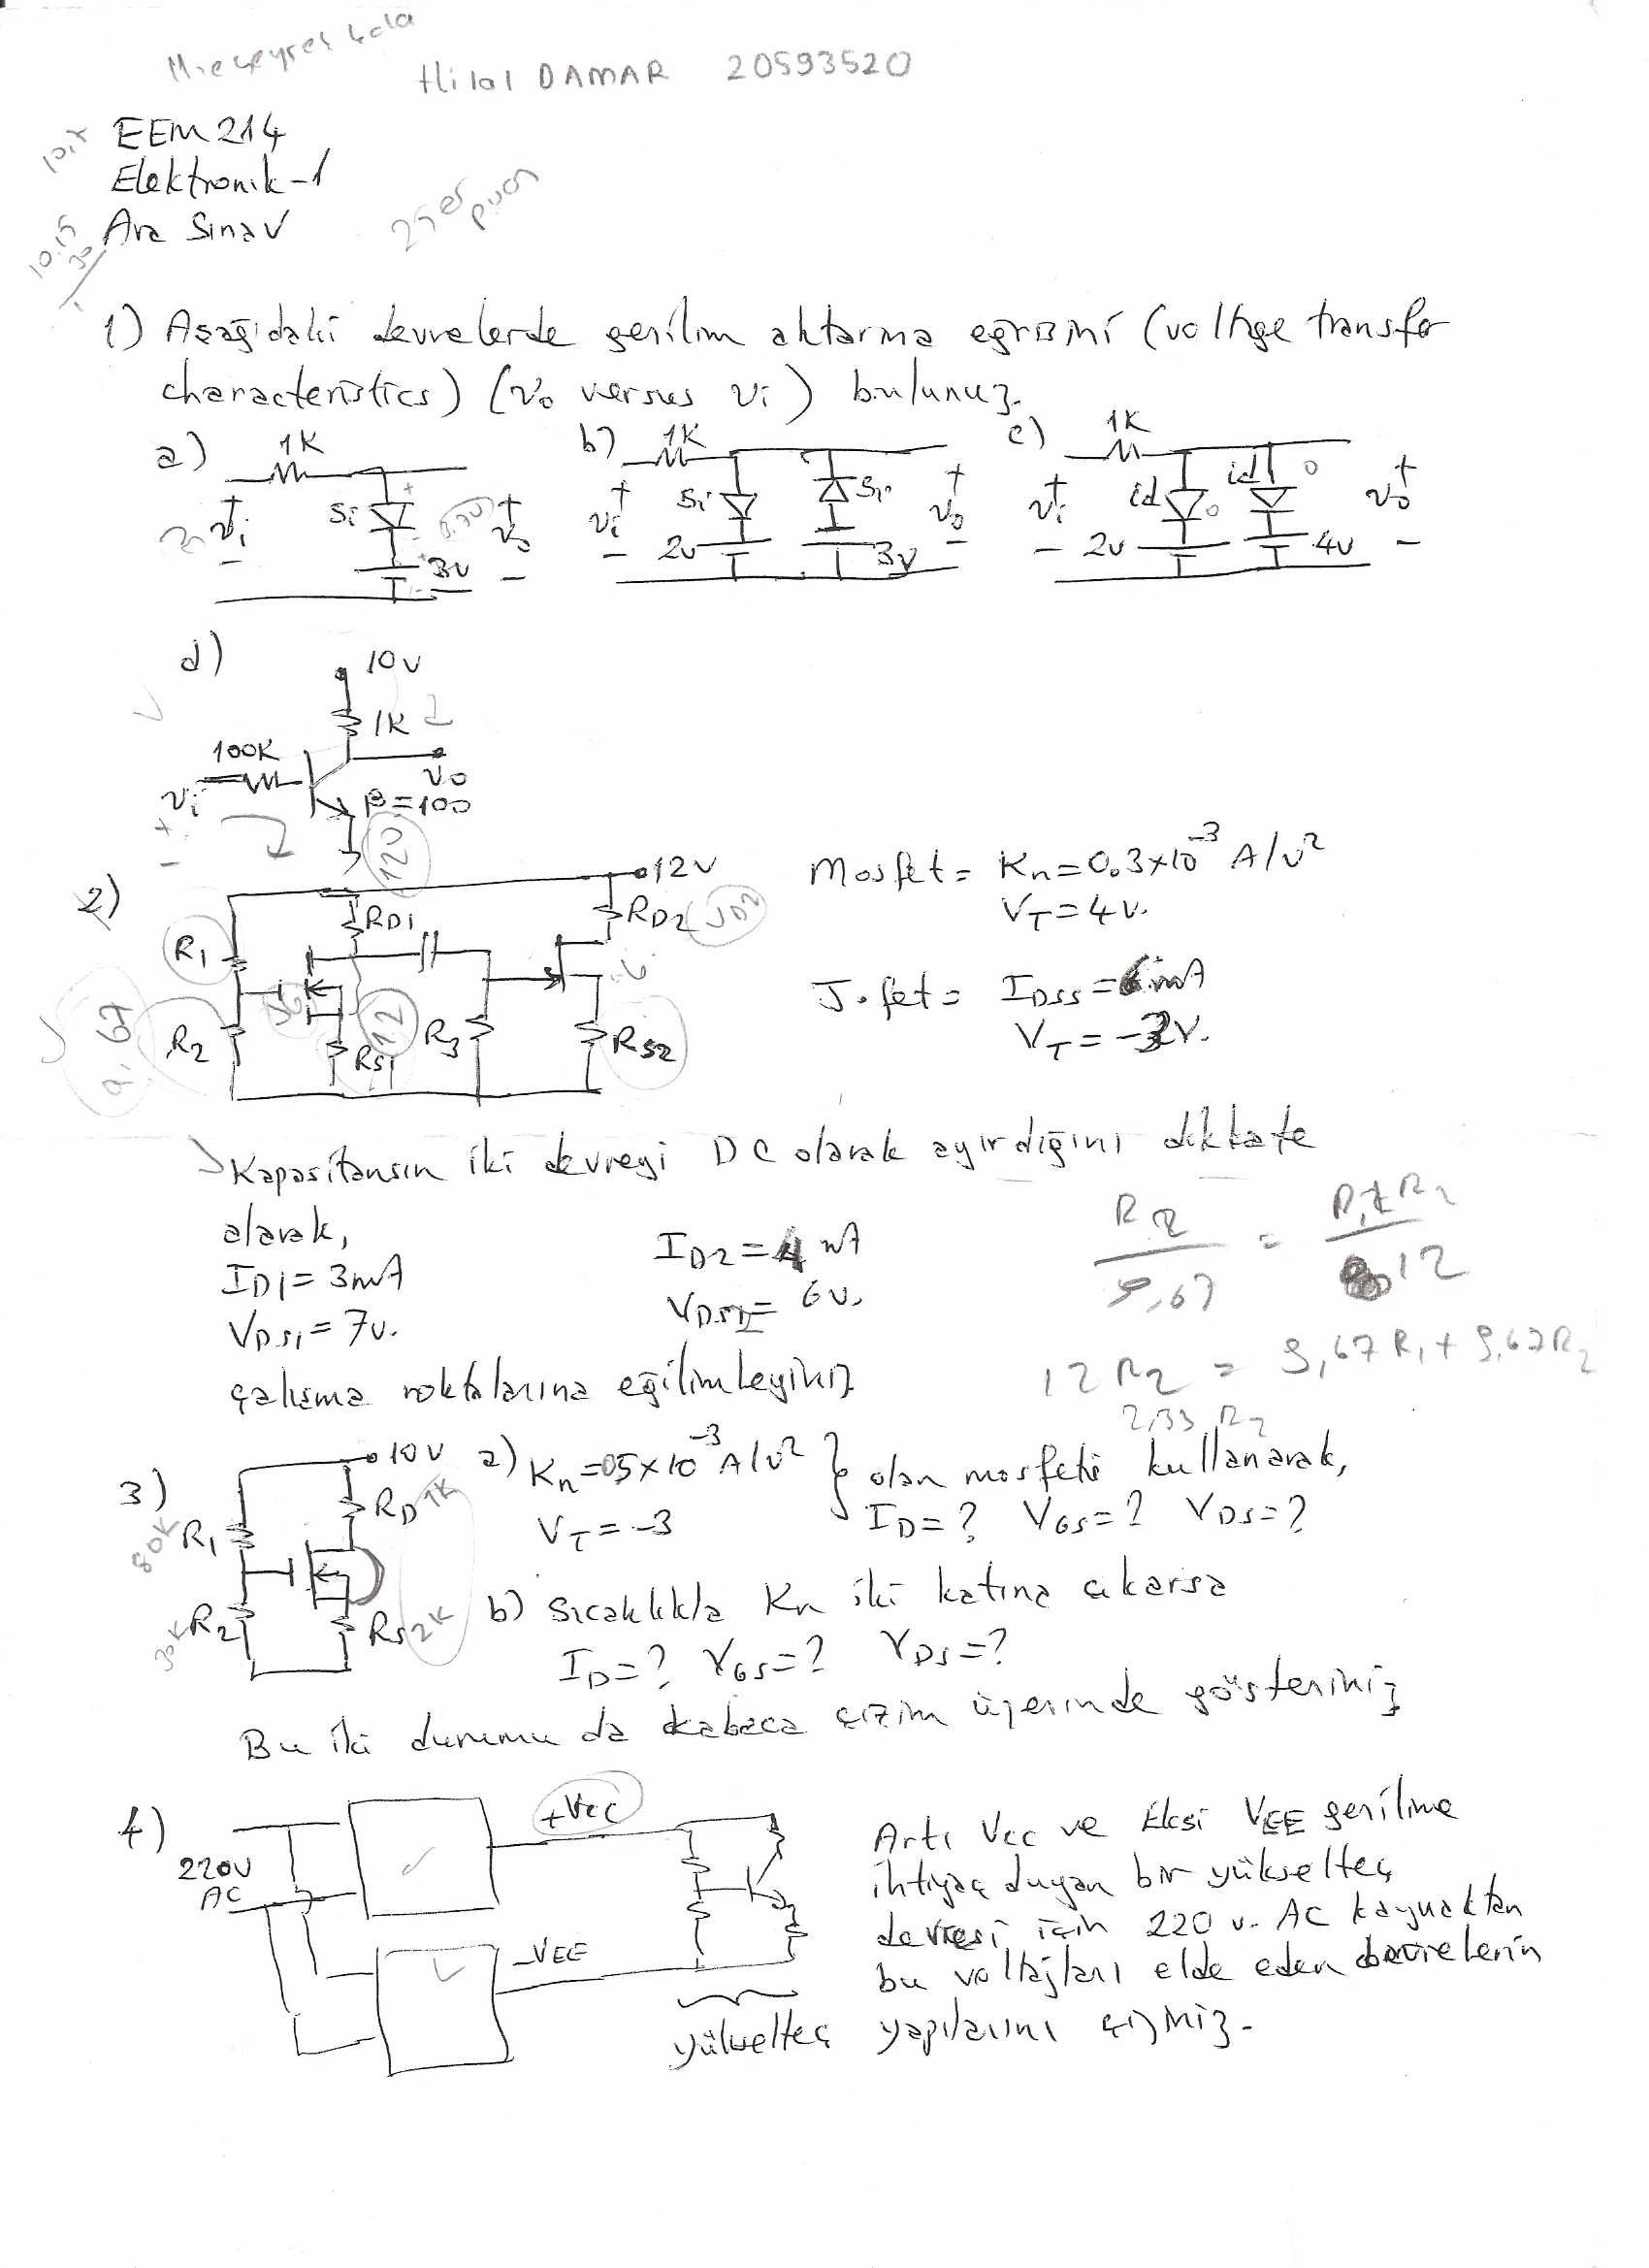 Hilal DAMAR 20593520
EEM 214
Elektronik-1
Ara Sınav
25 er puan
1) Aşağıdaki devrelerde gerilim aktarma eğrisini (voltage transfer
characteristics) (vo versus vi) bulunuz.
a) 1K Si 3v vi vo + -
b) 1K Si Si 2v 3v vi vo + -
c) 1K id id 2v 4v vi vo + -
d) 10v
1K
100K
vo
vi
β=100
2) 12v
RD1 RD2 JD2
R1
R2 RS1 R3 RS2
12V
12
9,67
Mosfet = Kn=0.3x10^-3 A/v²
VT=4v.
J.fet = IDSS=6mA
VT=-3v.
Kapasitansın iki devreyi DC olarak ayırdığını dikkate
alarak,
ID1=3mA ID2=4mA
VDS1=7v. VDS2=6v.
çalışma noktalarına eğilimleyiniz
R2 / 9,67 = R1+R2 / 12
12R2 = 9,67R1+9,67R2
2,33 R2
3) 10V
R1 RD 1K
80K
R2 RS 2K
30K
a) Kn=05x10^-3 A/v² } olan mosfeti kullanarak,
VT=-3 ID=? VGS=? VDS=?
b) Sıcaklıkla Kn iki katına çıkarsa
ID=? VGS=? VDS=?
Bu iki durumu da kabaca çizim üzerinde gösteriniz
4) 220V
AC
+Vcc
-VEE
yükselteç
Artı Vcc ve Eksi VEE gerilime
ihtiyaç duyan bir yükselteç
devresi için 220 v. AC kaynaktan
bu voltajları elde eden devrelerin
yapılarını çiziniz.